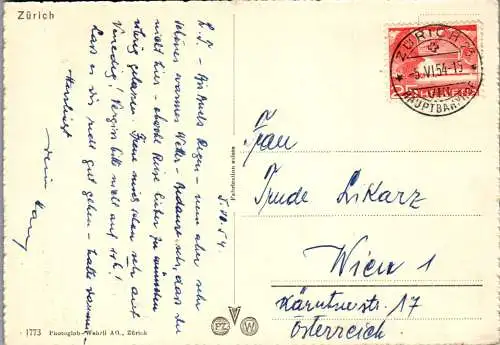 Zürich
5.VI.54.
L.S. – Anfangs Regen – nun aber sehr
schönes warmes Wetter – Bedaure sehr, dass du
nicht hier – obwohl Reise lieber zu wünschen
übrig gelassen. Freue mich schon sehr auf
Venedig! Vergiss bitte nicht auf
Lass es dir recht gut gehen –
Herzlichst
dein
1773 Photoglob-Wehrli AG., Zürich
PZ W
ZÜRICH 23
5.VI.54-15
HAUPTBAHNHOF
Frau
Trude Likarz
Wien 1
Kärntnerstr. 17
Österreich